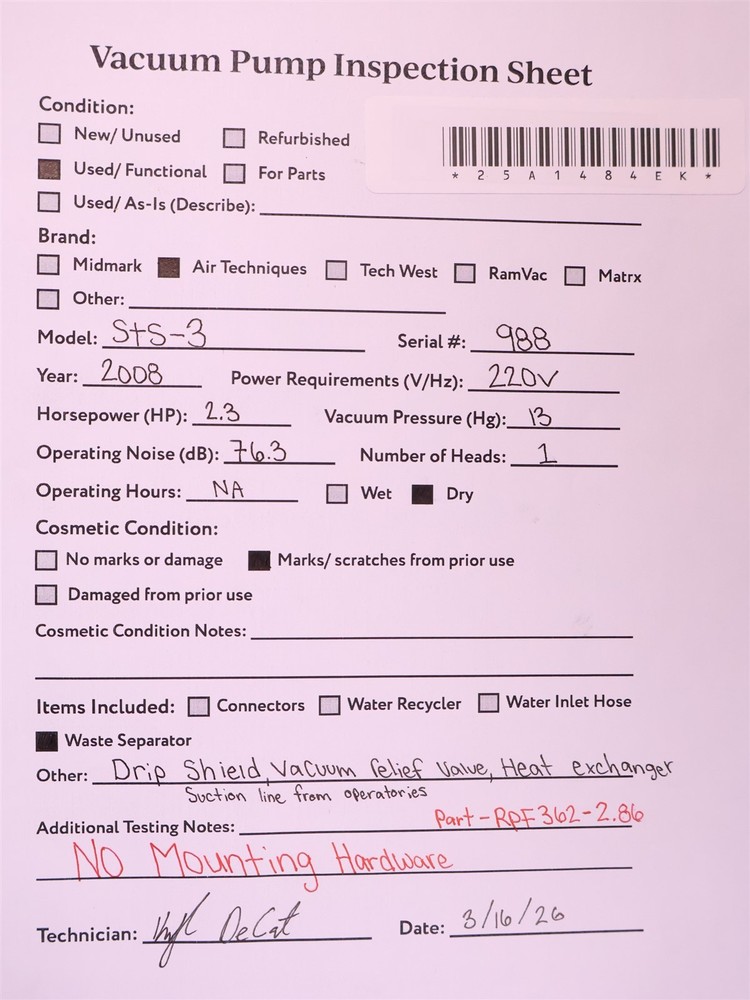 Vacuum Pump Inspection Sheet
Condition:
New/ Unused Refurbished
Used/ Functional For Parts
*25A1484EK*
Used/ As-Is (Describe):
Brand:
Midmark Air Techniques Tech West RamVac Matrx
Other:
Model: StS-3 Serial #: 988
Year: 2008 Power Requirements (V/Hz): 220V
Horsepower (HP): 2.3 Vacuum Pressure (Hg): 13
Operating Noise (dB): 76.3 Number of Heads: 1
Operating Hours: NA Wet Dry
Cosmetic Condition:
No marks or damage Marks/ scratches from prior use
Damaged from prior use
Cosmetic Condition Notes:
Items Included: Connectors Water Recycler Water Inlet Hose
Waste Separator
Other: Drip Shield, Vacuum relief valve, Heat exchanger
Suction line from operatories
Additional Testing Notes: Part-RPF362-2.86
NO Mounting Hardware
Technician: DeCat Date: 3/16/26